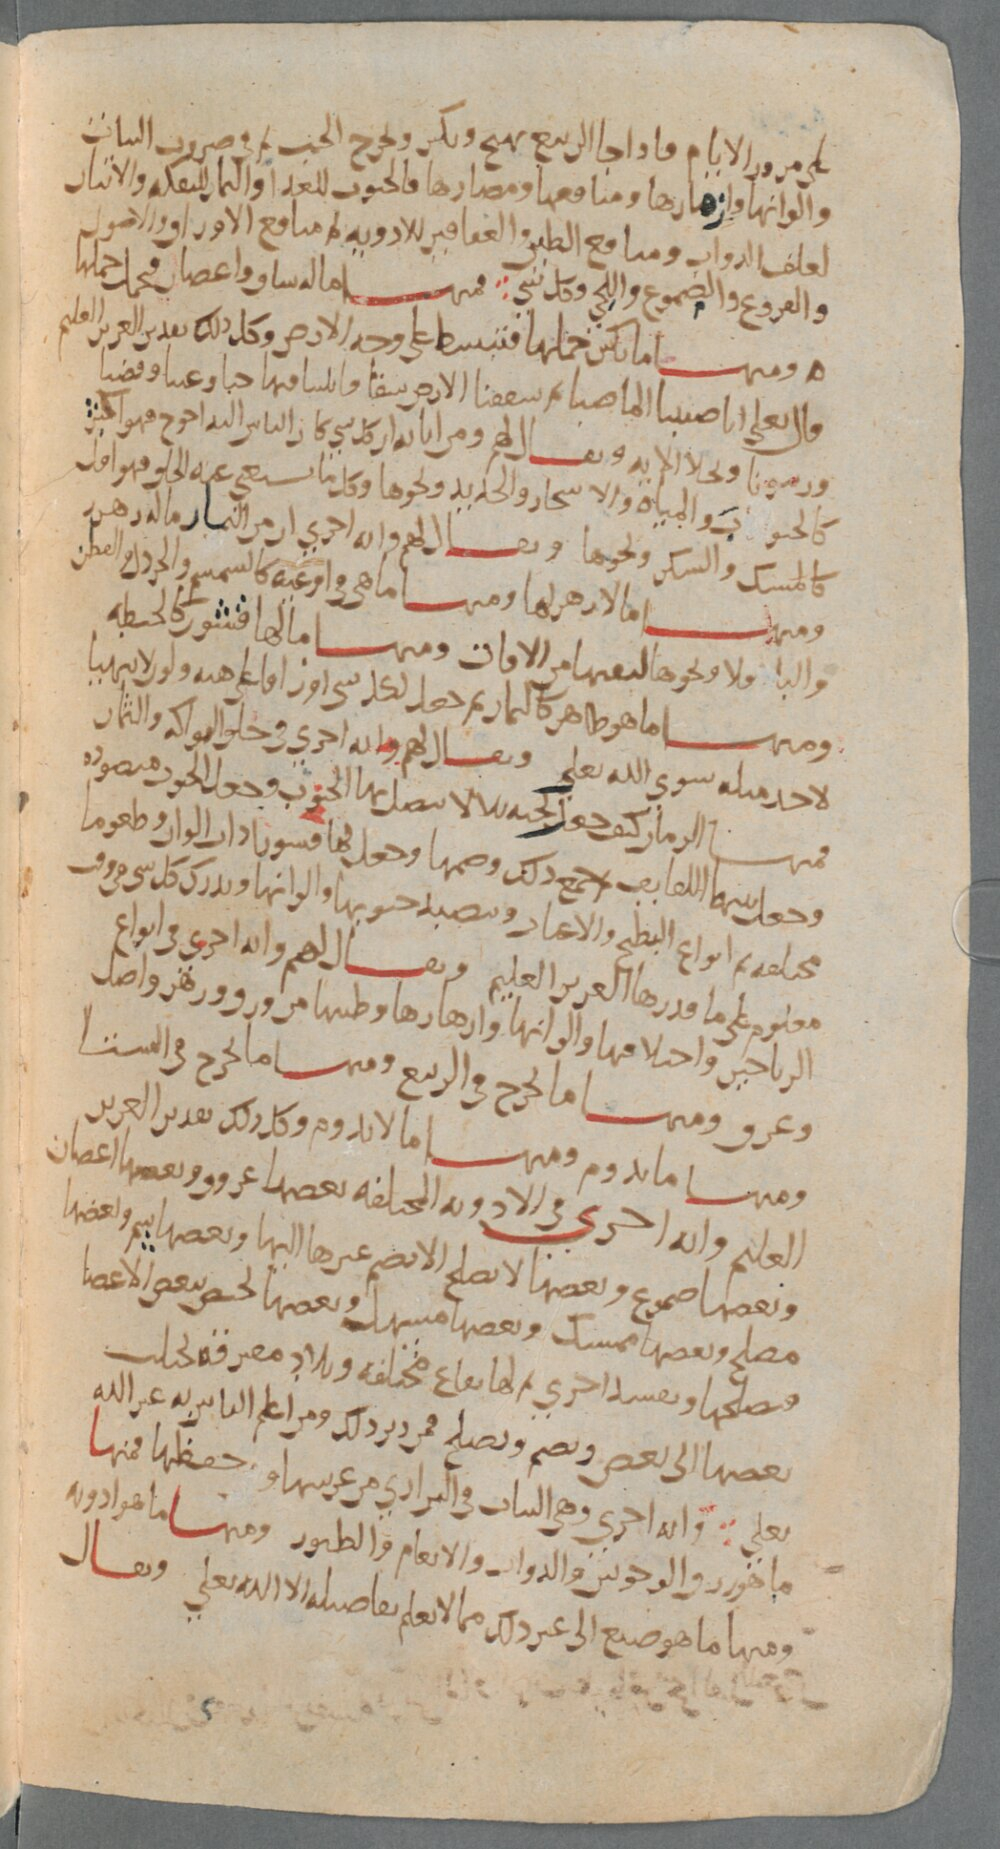 على مرور الايام فاذا جا الربيع يهيج ويكبر ويخرج الحب ثم في ضروب النبات
والوانها وازهارها ومنافعها ومضارها فالحبوب للغذا والثمار للتفكه والاتبان
لعلف الدواب ومنافع الطير والعقاقير للادويه ثم منافع الاوراق والاصول
والفروع والصموغ واللحي وكل شي فمنها ماله ساق واغصان فيحمل حملها
ومنها ما يكثر حملها فتنبسط على وجه الارض وكل ذلك تقدير العزيز العليم
قال تعلى انا صببنا الما صبا ثم شققنا الارض شقا فانبتنا فيها حبا وعنبا وقضبا
وزيتونا ونخلا الايه ويقال لهم ومن اياته ان كل شي كان الناس اليه احوج فهو اكثر
كالحبوب والمياه والاشجار والحديد ونحوها وكل ما يستغني عنه الخلق فهو اقل
كالمسك والسكر ونحوها ويقال لهم وايه اخرى ان من الثمار ماله زهره
ومنها ما لا زهر لها ومنها ما هي في اوعيه كالسمسم والخردل والقطن
والباقلا ونحوها لتقيها من الافات ومنها مالها قشور كالحنطه
ومنها ما هو ظاهر كالثمار ثم جعل لكل شي اوراقا على هيه ولون لا يتهيا
لاحد مثله سوى الله تعلى ويقال لهم وايه اخرى في خلق الفواكه والثمار
فمنها الرمان كيف جعل الحبه لئلا لا يتصل بها الحبوب وجعل الحبوب منضوده
وجعل بينها اللفايف ثم جمع ذلك وضمها وجعل لها قشورا ذات الوان وطعوما
مختلفه ثم انواع البطيخ والاعناب وتنضيد حبوبها والوانها ويدرك كل شي في وقت
معلوم على ما قدرها العزيز العليم ويقال لهم وايه اخرى في انواع
الرياحين واختلافها والوانها وازهارها وطيبها من ورق وزهر واصل
وعرق ومنها ما يخرج في الربيع ومنها ما يخرج في الشتا
ومنها ما يدوم ومنها ما لا يدوم وكل ذلك تقدير العزيز
العليم وايه اخرى في الادويه المختلفه بعضها عروق وبعضها اغصان
وبعضها صموغ وبعضها لا يصلح الا بضم غيرها اليها وبعضها سم وبعضها
مصلح وبعضها ممسك وبعضها مسهل وبعضها يختص ببعض الاعضا
فيصلحها ويفسد اخرى ثم لها بقاع مختلفه وبلاد متفرقه يجلب
بعضها الى بعض ويضم ويصلح فمن دبر ذلك ومن اعلم الناس به غير الله
تعلى وايه اخرى وهي النبات في البراري من غرسها وحفظها فمنها
ما هو رزق الوحوش والدواب والانعام والطيور ومنها ما هو ادويه
ومنها ما هو صبغ الى غير ذلك مما لا يعلم تفاصيله الا الله تعلى ويقال